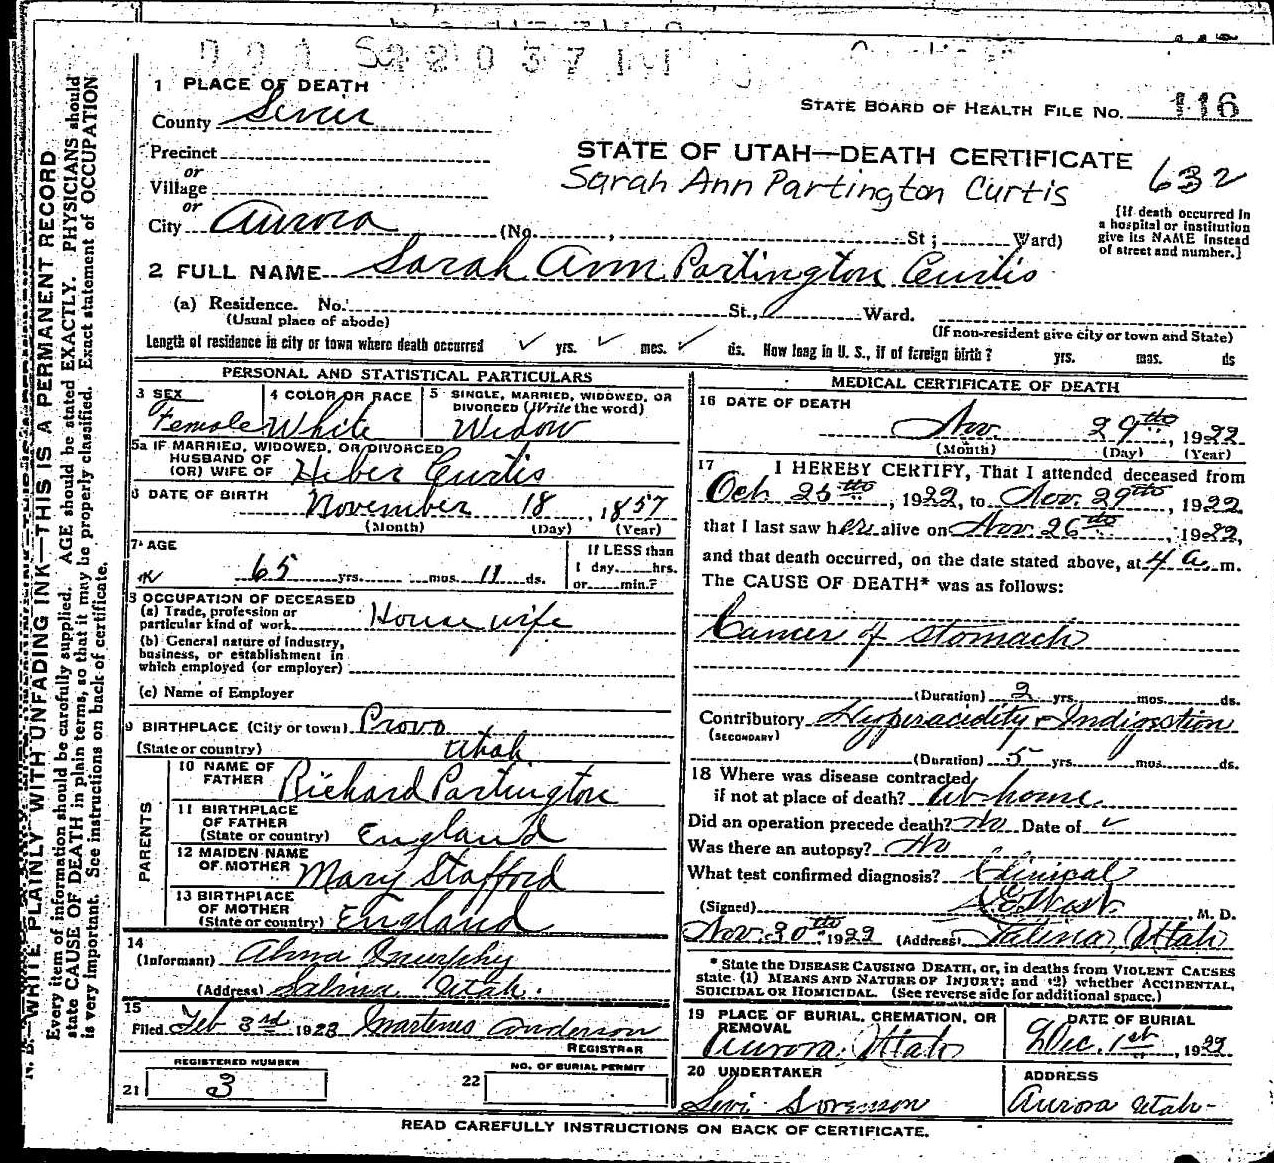 1 PLACE OF DEATH
STATE BOARD OF HEALTH FILE NO. 116
County Sevier
Precinct
or
Village
or
City Aurora (No. , St ; Ward)
STATE OF UTAH—DEATH CERTIFICATE
Sarah Ann Partington Curtis 632
[If death occurred in
a hospital or institution
give its NAME instead
of street and number.]
2 FULL NAME Sarah Ann Partington Curtis
(a) Residence. No. St., Ward.
(Usual place of abode) (If non-resident give city or town and State)
Length of residence in city or town where death occurred yrs. mos. ds. How long in U. S., if of foreign birth? yrs. mos. ds
PERSONAL AND STATISTICAL PARTICULARS
3 SEX
Female
4 COLOR OR RACE
White
5 SINGLE, MARRIED, WIDOWED, OR
DIVORCED (Write the word)
Widow
5a IF MARRIED, WIDOWED, OR DIVORCED
HUSBAND OF
(OR) WIFE OF Heber Curtis
6 DATE OF BIRTH
November 18, 1857
(Month) (Day) (Year)
7 AGE
65 yrs. mos. 11 ds.
If LESS than
1 day hrs.
or min.?
8 OCCUPATION OF DECEASED
(a) Trade, profession or
particular kind of work House wife
(b) General nature of industry,
business, or establishment in
which employed (or employer)
(c) Name of Employer
9 BIRTHPLACE (City or town) Provo
(State or country) Utah
PARENTS
10 NAME OF
FATHER Richard Partington
11 BIRTHPLACE
OF FATHER
(State or country) England
12 MAIDEN NAME
OF MOTHER Mary Stafford
13 BIRTHPLACE
OF MOTHER
(State or country) England
14
(Informant)
(Address) Salina Utah.
15
Filed Feb 3rd 1923 Anderson
REGISTRAR
REGISTERED NUMBER
21 3
NO. OF BURIAL PERMIT
22
MEDICAL CERTIFICATE OF DEATH
16 DATE OF DEATH
Nov. 29th, 1922
(Month) (Day) (Year)
17 I HEREBY CERTIFY, That I attended deceased from
Oct 25th, 1922, to Nov. 29th 1922
that I last saw her alive on Nov. 26th, 1922,
and that death occurred, on the date stated above, at 4 a. m.
The CAUSE OF DEATH* was as follows:
Cancer of stomach
(Duration) 2 yrs. mos. ds.
Contributory Hyperacidity & Indigestion
(SECONDARY)
(Duration) 5 yrs. mos. ds.
18 Where was disease contracted
if not at place of death? At home.
Did an operation precede death? No Date of
Was there an autopsy? No
What test confirmed diagnosis? Clinical
(Signed) M. D.
Nov. 30th 1922 (Address) Salina, Utah
* State the DISEASE CAUSING DEATH, or, in deaths from VIOLENT CAUSES
state (1) MEANS AND NATURE OF INJURY; and (2) whether ACCIDENTAL,
SUICIDAL OR HOMICIDAL. (See reverse side for additional space.)
19 PLACE OF BURIAL, CREMATION, OR
REMOVAL
Aurora. Utah
DATE OF BURIAL
Dec. 1st, 1922
20 UNDERTAKER
Levi Sorenson
ADDRESS
Aurora Utah
READ CAREFULLY INSTRUCTIONS ON BACK OF CERTIFICATE.
N. B.—WRITE PLAINLY WITH UNFADING INK—THIS IS A PERMANENT RECORD
Every item of information should be carefully supplied. AGE should be stated EXACTLY. PHYSICIANS should
state CAUSE OF DEATH in plain terms, so that it may be properly classified. Exact statement of OCCUPATION
is very important. See instructions on back of certificate.